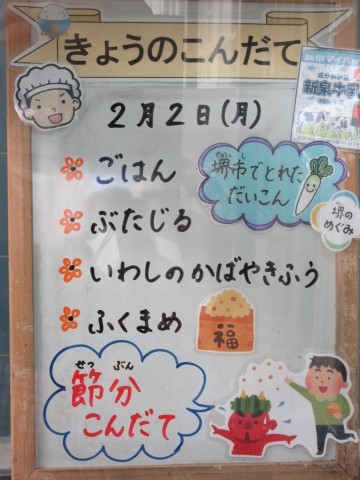 きょうのこんだて
2月2日(月)
ごはん
ぶたじる
いわしのかばやきふう
ふくまめ
堺市でとれた
だいこん
堺の
めぐみ
福
せつ ぶん
節分
こんだて
新泉牛乳